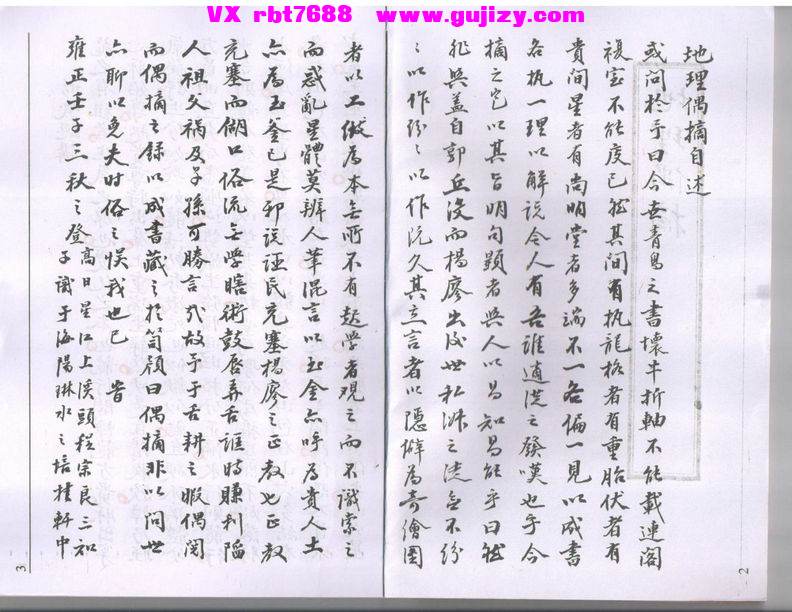 VX rbt7688 www.gujizy.com
地理偶摘自述
或问於予曰今世青鳥之書壞牛折軸不能載連阁
複室不能度已然其间有执龍格者有重胎伏者有
貴间星者有尚明堂者多端不一各偏一見以成書
各执一理以解説令人有吾誰適從之發嘆也乎今
摘之它以其旨明句顕者與人以易知易能乎曰然
非與盖自郭丘没而楊廖出後世私淋之徒無不纷
纷以作纷纷以作阮久其立言者以隐僻為奇繪图
2
者以工緻為本無所不有起学者观之而不識索之
而惑亂星體莫辨人筆混言以玉金亦呼為貴人土
亦為玉釜已是邪説诬民充塞楊廖之正教也正教
充塞而餬口俗流無学瞎術鼓唇弄舌誰時賺利陷
人祖父祸及子孫可勝言哉故予于舌耕之暇偶阅
而偶摘之録以成書藏之於笥颜曰偶摘非以问世
亦聊以免夫时俗之悮我也已 旹
雍正壬子三秋之登高日星江上溪頭程宗良三知
子識于海陽琳水之培桂軒中
3